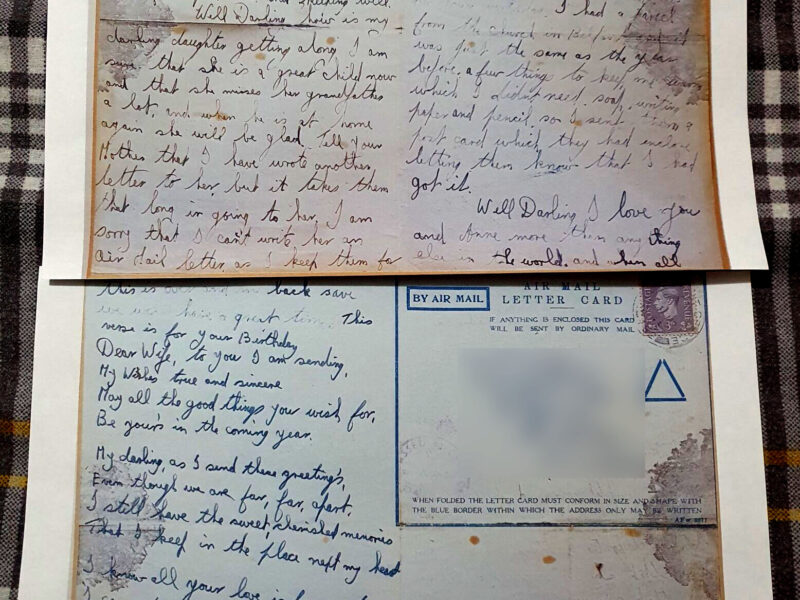 keeping well.
Well Darling how is my
darling daughter getting along I am
sure that she is a great child now
and that she misses her grandfather
a lot, and when he is at home
again she will be glad. Tell your
Mother that I have wrote another
letter to her, but it takes them
that long in going to her, I am
sorry that I can't write her an
air Mail letter as I keep them for
I had a parcel
from the church in
was just the same as the year
before, a few things to keep me
which I didn't need. soap, writing
paper and pencil so I sent them a
post card which they had enclose
letting them know that I had
got it.
Well Darling I love you
and Anne more then any thing
else in the world. and when all
this is over and im back save
we will have a great time. This
verse is for your Birthday
Dear Wife, to you I am sending,
My Wishes true and sincere
May all the good things you wish for,
Be your's in the coming year.
My darling, as I send these greeting's,
Even though we are far, far, apart.
I still have the sweet, cherished memories
That I keep in the place next my heart
I know all your love is
BY AIR MAIL
AIR MAIL
LETTER CARD
IF ANYTHING IS ENCLOSED THIS CARD
WILL BE SENT BY ORDINARY MAIL
WHEN FOLDED THE LETTER CARD MUST CONFORM IN SIZE AND SHAPE WITH
THE BLUE BORDER WITHIN WHICH THE ADDRESS ONLY MAY BE WRITTEN